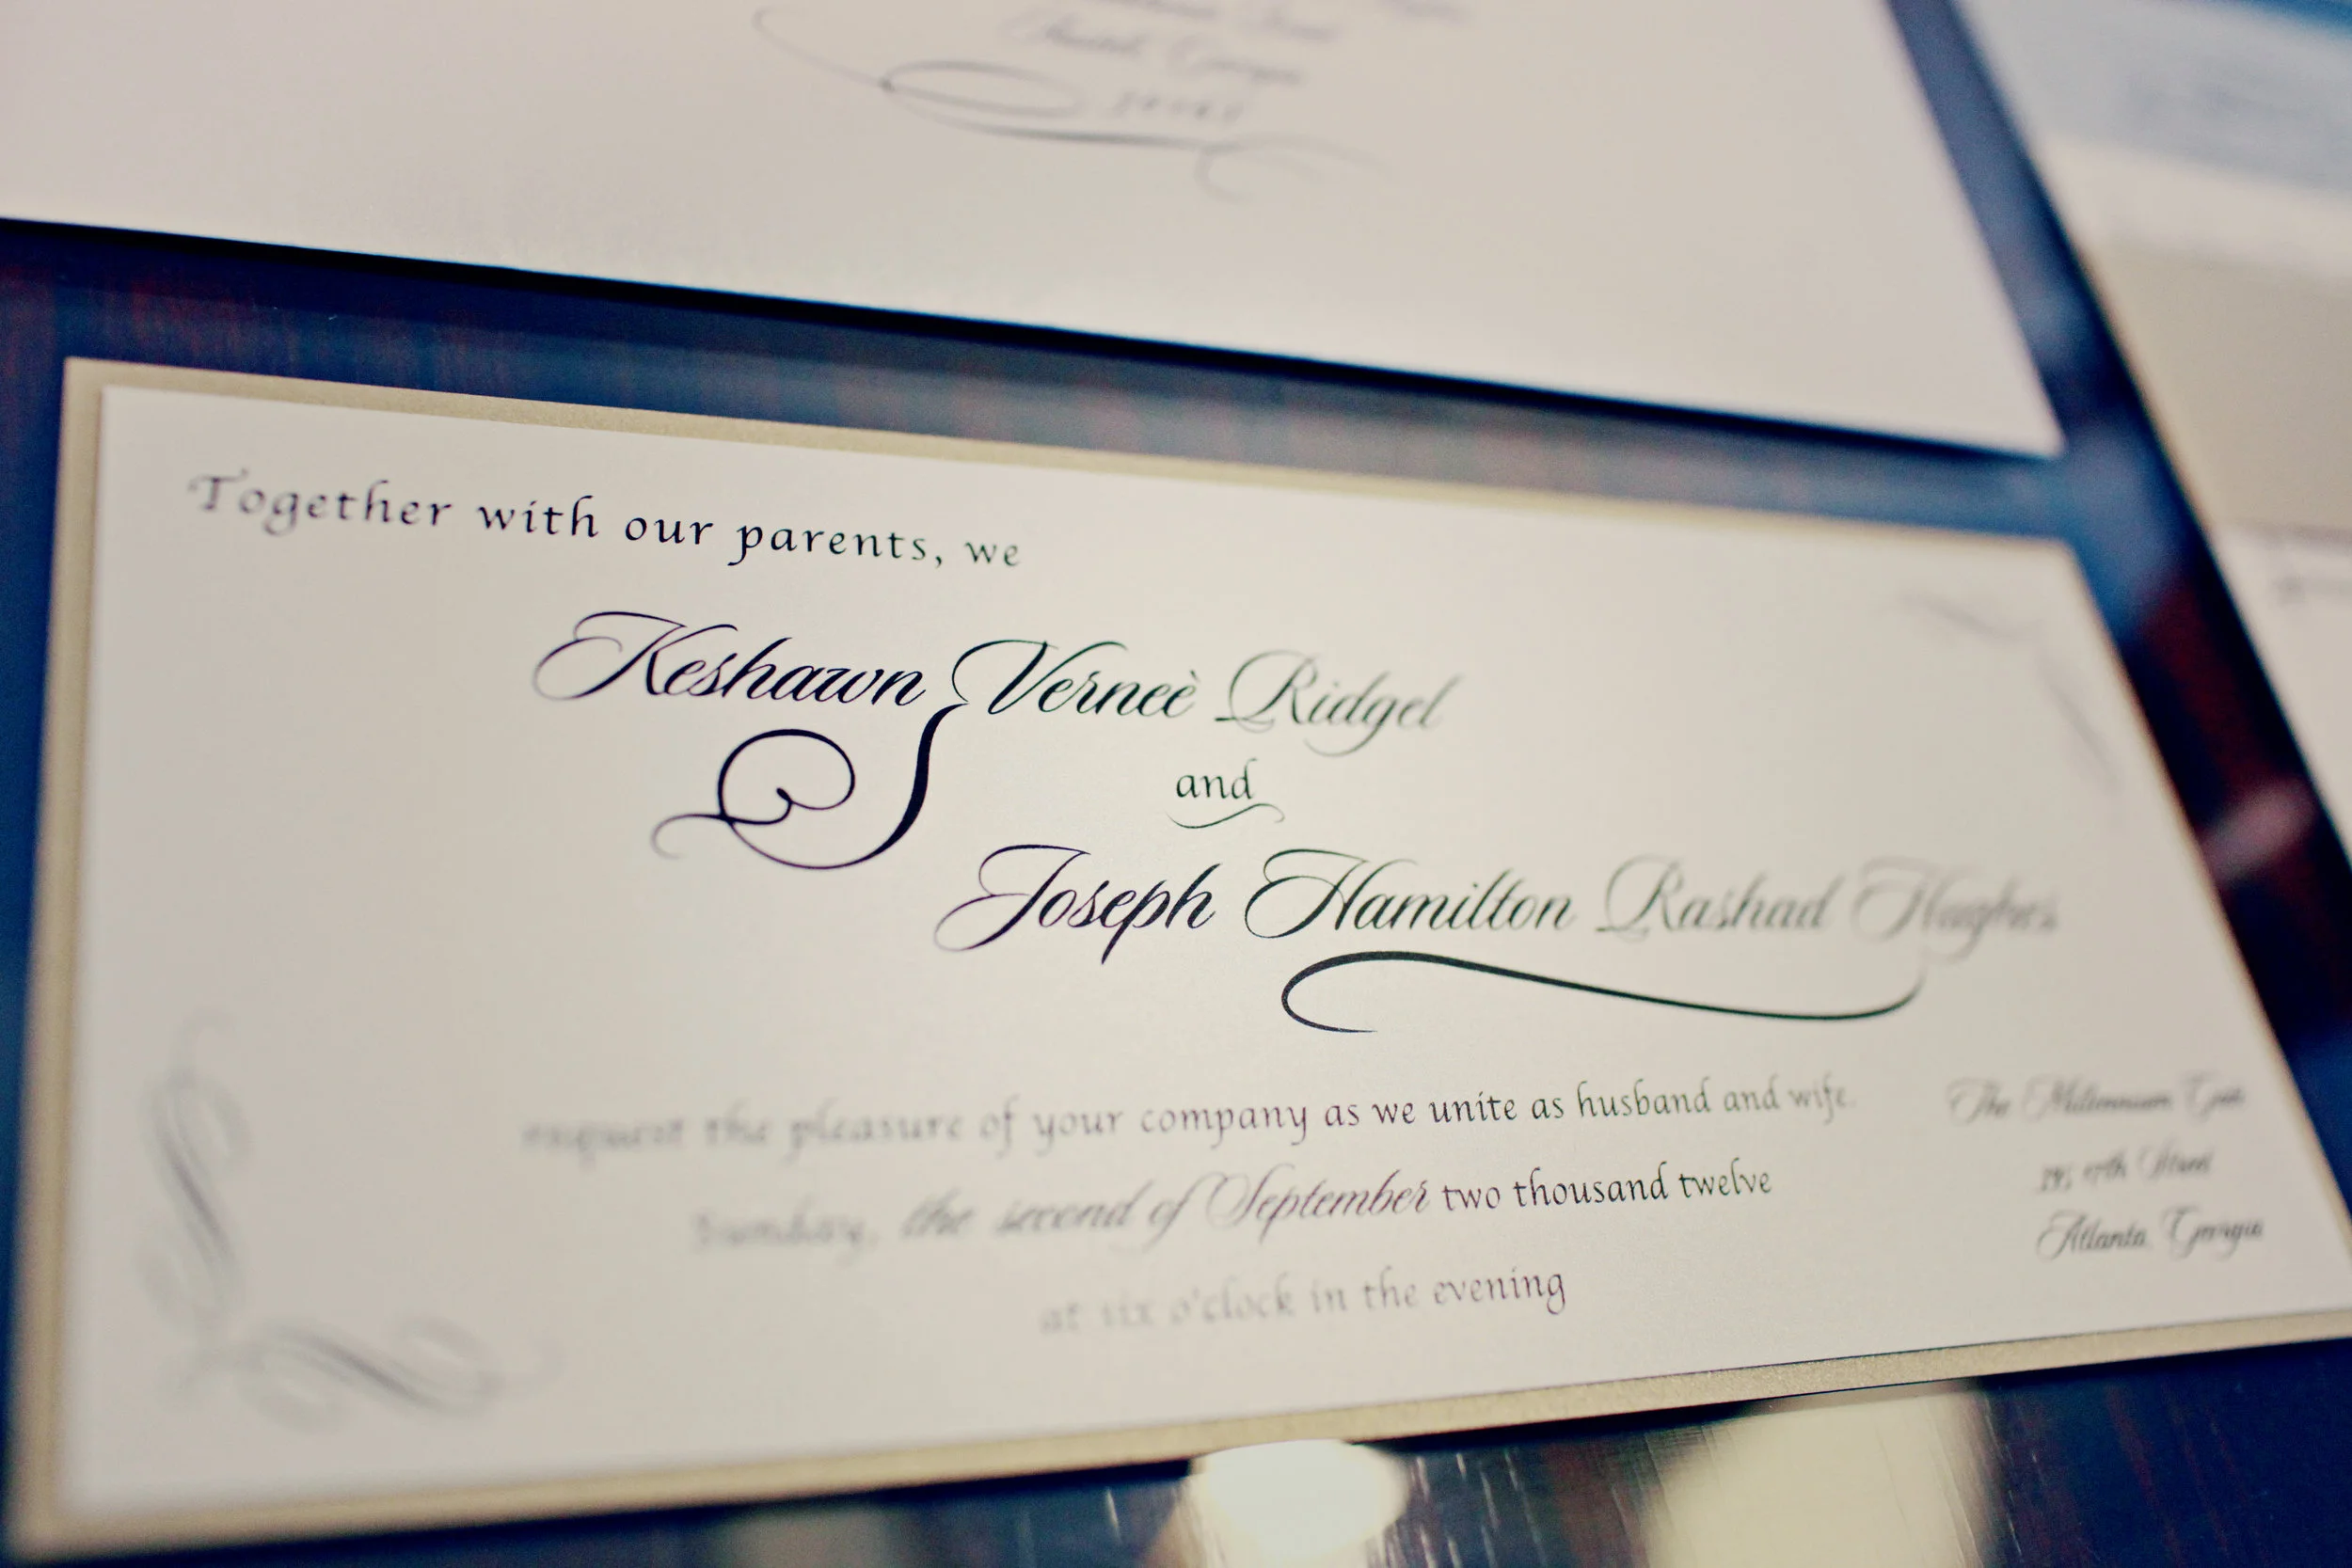 Together with our parents, we
Keshawn Verneè Ridgel
and
Joseph Hamilton Rashad Hughes
request the pleasure of your company as we unite as husband and wife.
Sunday, the second of September two thousand twelve
at six o'clock in the evening
The Millennium Gate
17th Street
Atlanta, Georgia